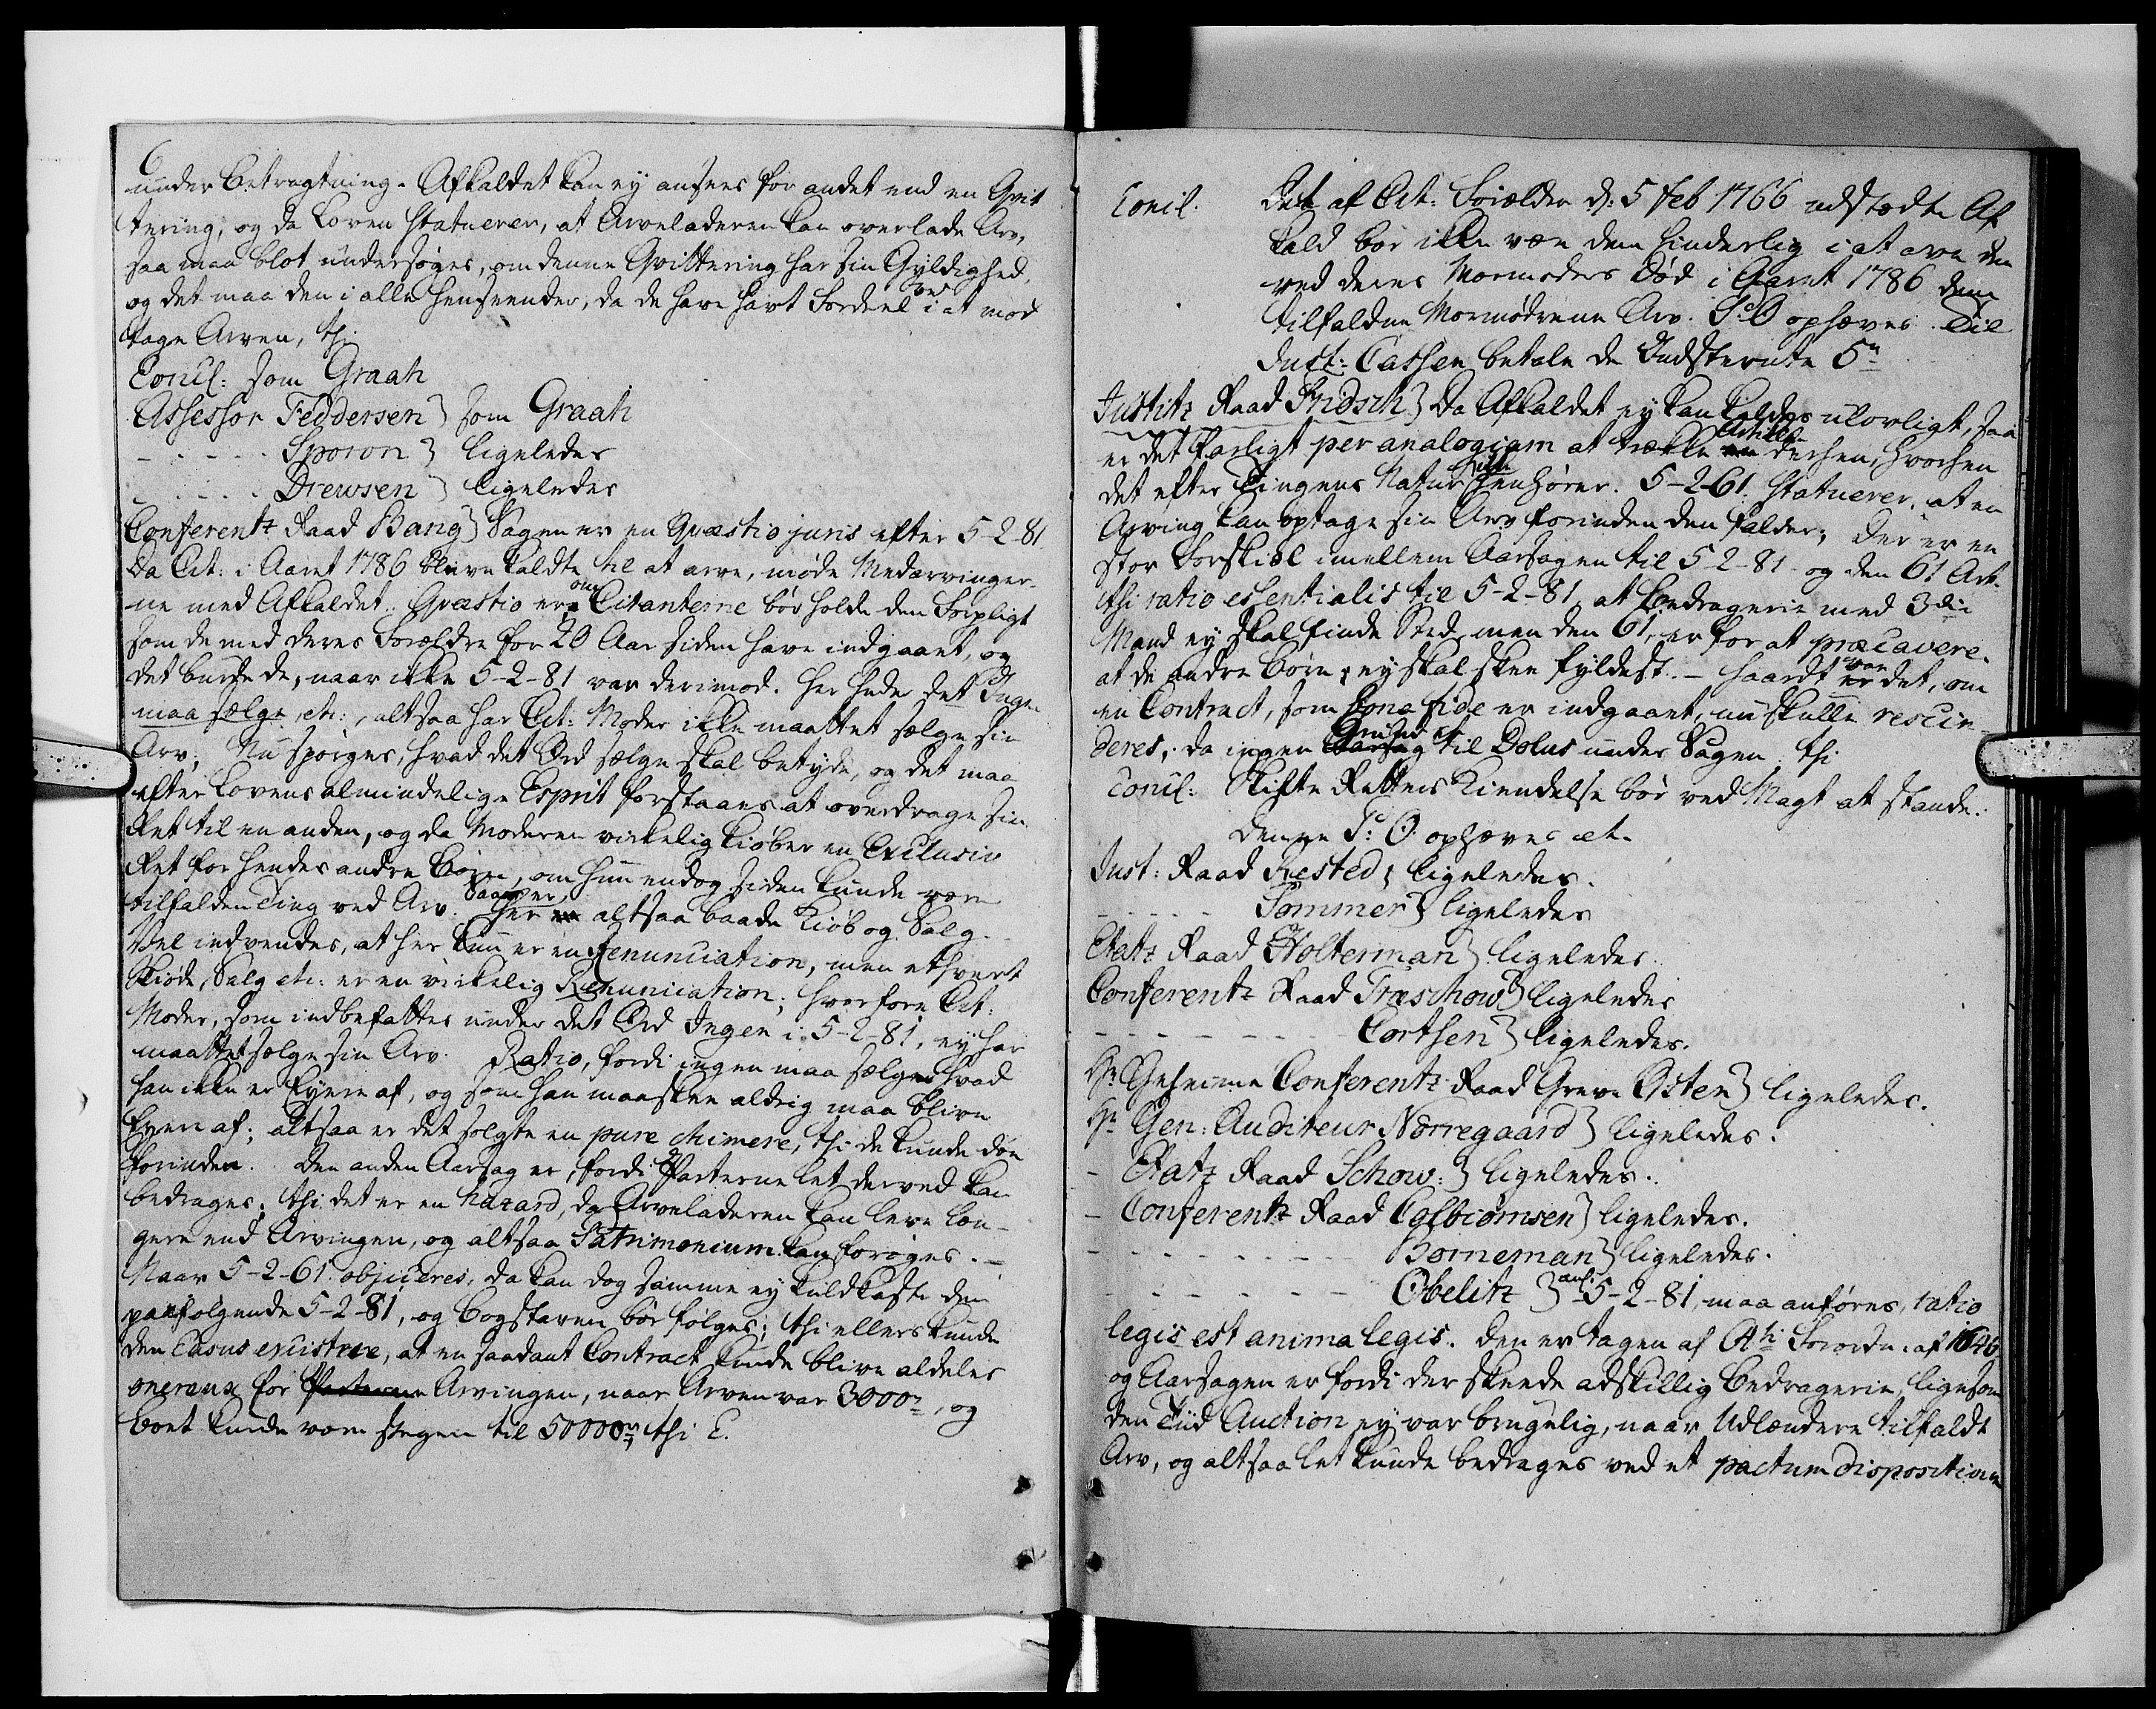 6
under Betragtning. Afkaldet kan ey ansees for andet end en Qvit
tering, og da Loven statuerer, at Arveladeren kan overlade Arv,
saa maa blot undersøges, om denne Qvittering har sin Gyldighed,
og det maa den i alle Henseender, da de have havt Fordeel ved i at mod
tage Arven, thi
Concl: som Graah
Assessor Feddersen} som Graah
- - - - - Sporon} ligeledes
- - - - - Drewsen} ligeledes
Conferentz Raad Bang} Sagen er en Qvæstio juris efter 5-2-81.
Da Cit: i Aaret 1786 bleve kaldte til at arve, møde Medarvinger-
ne med Afkaldet. Qvæstio er, om Citanterne bør holde den Forpligt
som de med deres Forældre for 20 Aar siden have indgaaet, og
det burde de, naar ikke 5-2-81 var derimod. Her heder det Ingen
maa sælge etc:, altsaa har Cit: Moder ikke maattet sælge sin
Arv; Nu spørges, hvad det Ord sælge skal betyde, og det maa
efter Lovens almindelige Esprit forstaaes at overdrage sin
Ret til en anden, og da Moderen virkelig kiøber en Exclusiv
Ret for hendes andre Børn, om hun endog siden kunde vorde
tilfalden Ting ved Arv. Saa er her altsaa baade Kiøb og Salg.
Vel indvendes, at her kun er en Renunciation, men ethvert
Skiøde, Salg etc: er en virkelig Renunciation; hvorfore Cit:
Moder, som indbefattes under det Ord Ingen i 5-2-81, ey har
maattet sælge sin Arv. Ratio, fordi ingen maa sælge hvad
han ikke er Eyere af, og som han maaskee aldrig maa blive
Eyere af; altsaa er det solgte en pure chimere, thi de kunde døe
forinden. Den anden Aarsag er, fordi Parterne let derved kan
bedrages; thi det er en hazard, da Arveladeren kan leve læn-
gere end Arvingen, og altsaa Patrimonium kan forøges. -
Naar 5-2-61. objiceres, da kan dog samme ey kuldkaste den
paafølgende 5-2-81, og Bogstaven bør følges; thi ellers kunde
den Casus existere, at en saadant Contract kunde blive aldeles
onereux for Parterne Arvingen, naar Arven var 3000 rd, og
Boet kunde være stegen til 50000 rd thi E.
Concl. Det af Cit: Forælder d: 5 Feb 1766 udstædte Af
kald bør ikke være dem hinderlig i at arve den
ved deres Mormoders Død i Aaret 1786 dem
tilfaldne Mormødrene Arv. P: O ophæves. Til
Just: Cassen betale de Indstevnte 5 rd
Justitz Raad Fridsch} Da Afkaldet ey kan kaldes ulovligt, saa
er det farligt per analogiam at trække Artikler derhen, hvorhen
det efter Tingens Natur ikke henhører. 5-2-61. statuerer, at en
Arving kan optage sin Arv forinden den falder; Der er en
stor Forskiel imellem Aarsagen til 5-2-81 og den 61 Art.
thi ratio essentialis til 5-2-81, at Bedragerie med 3die
Mand ey skal finde Sted, men den 61, er for at præcavere,
at de andre Børn ey skal skee fyldest. - Haardt var det, om
en Contract, som bona fide er indgaaet, nu skulle rescin-
deres, da ingen Grund er til Dolus under Sagen thi
Concl: Skifte Rettens Kiendelse bør ved Magt at stande.
Denne P: O ophæves etc.
Just: Raad Frested} ligeledes.
- - - - - Sommer} ligeledes
Etatz Raad Holterman} ligeledes.
Conferentz Raad Treschow} ligeledes
- - - - - - - Cortsen} ligeledes.
Hr Geheime Conferentz Raad Greve Osten} ligeledes.
Hr Gen: Auditeur Nørregaard} ligeledes.
- Etatz Raad Schow:} ligeledes.
- Conferentz Raad Colbiørnsen} ligeledes.
- - - - - - - Borneman} ligeledes.
- - - - - - - Obelitz} anf. 5-2-81, maa anføres, ratio
legis est anima legis. Den er tagen af Ch: Forordn. af 1646
og Aarsagen er fordi der skeede adskillig Bedragerie, ligesom
den Tiid Auction ey var brugelig, naar Udlændere tilfaldt
Arv, og altsaa let kunde bedrages ved et pactum dispositionem